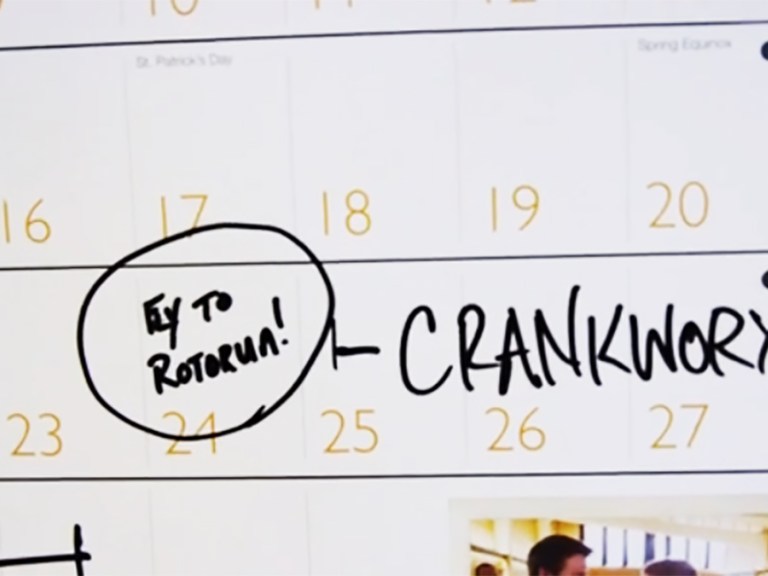 St. Patrick's Day
Spring Equinox
16 17 18 19 20
FLY TO
ROTORUA!
CRANKWORX
23 24 25 26 27